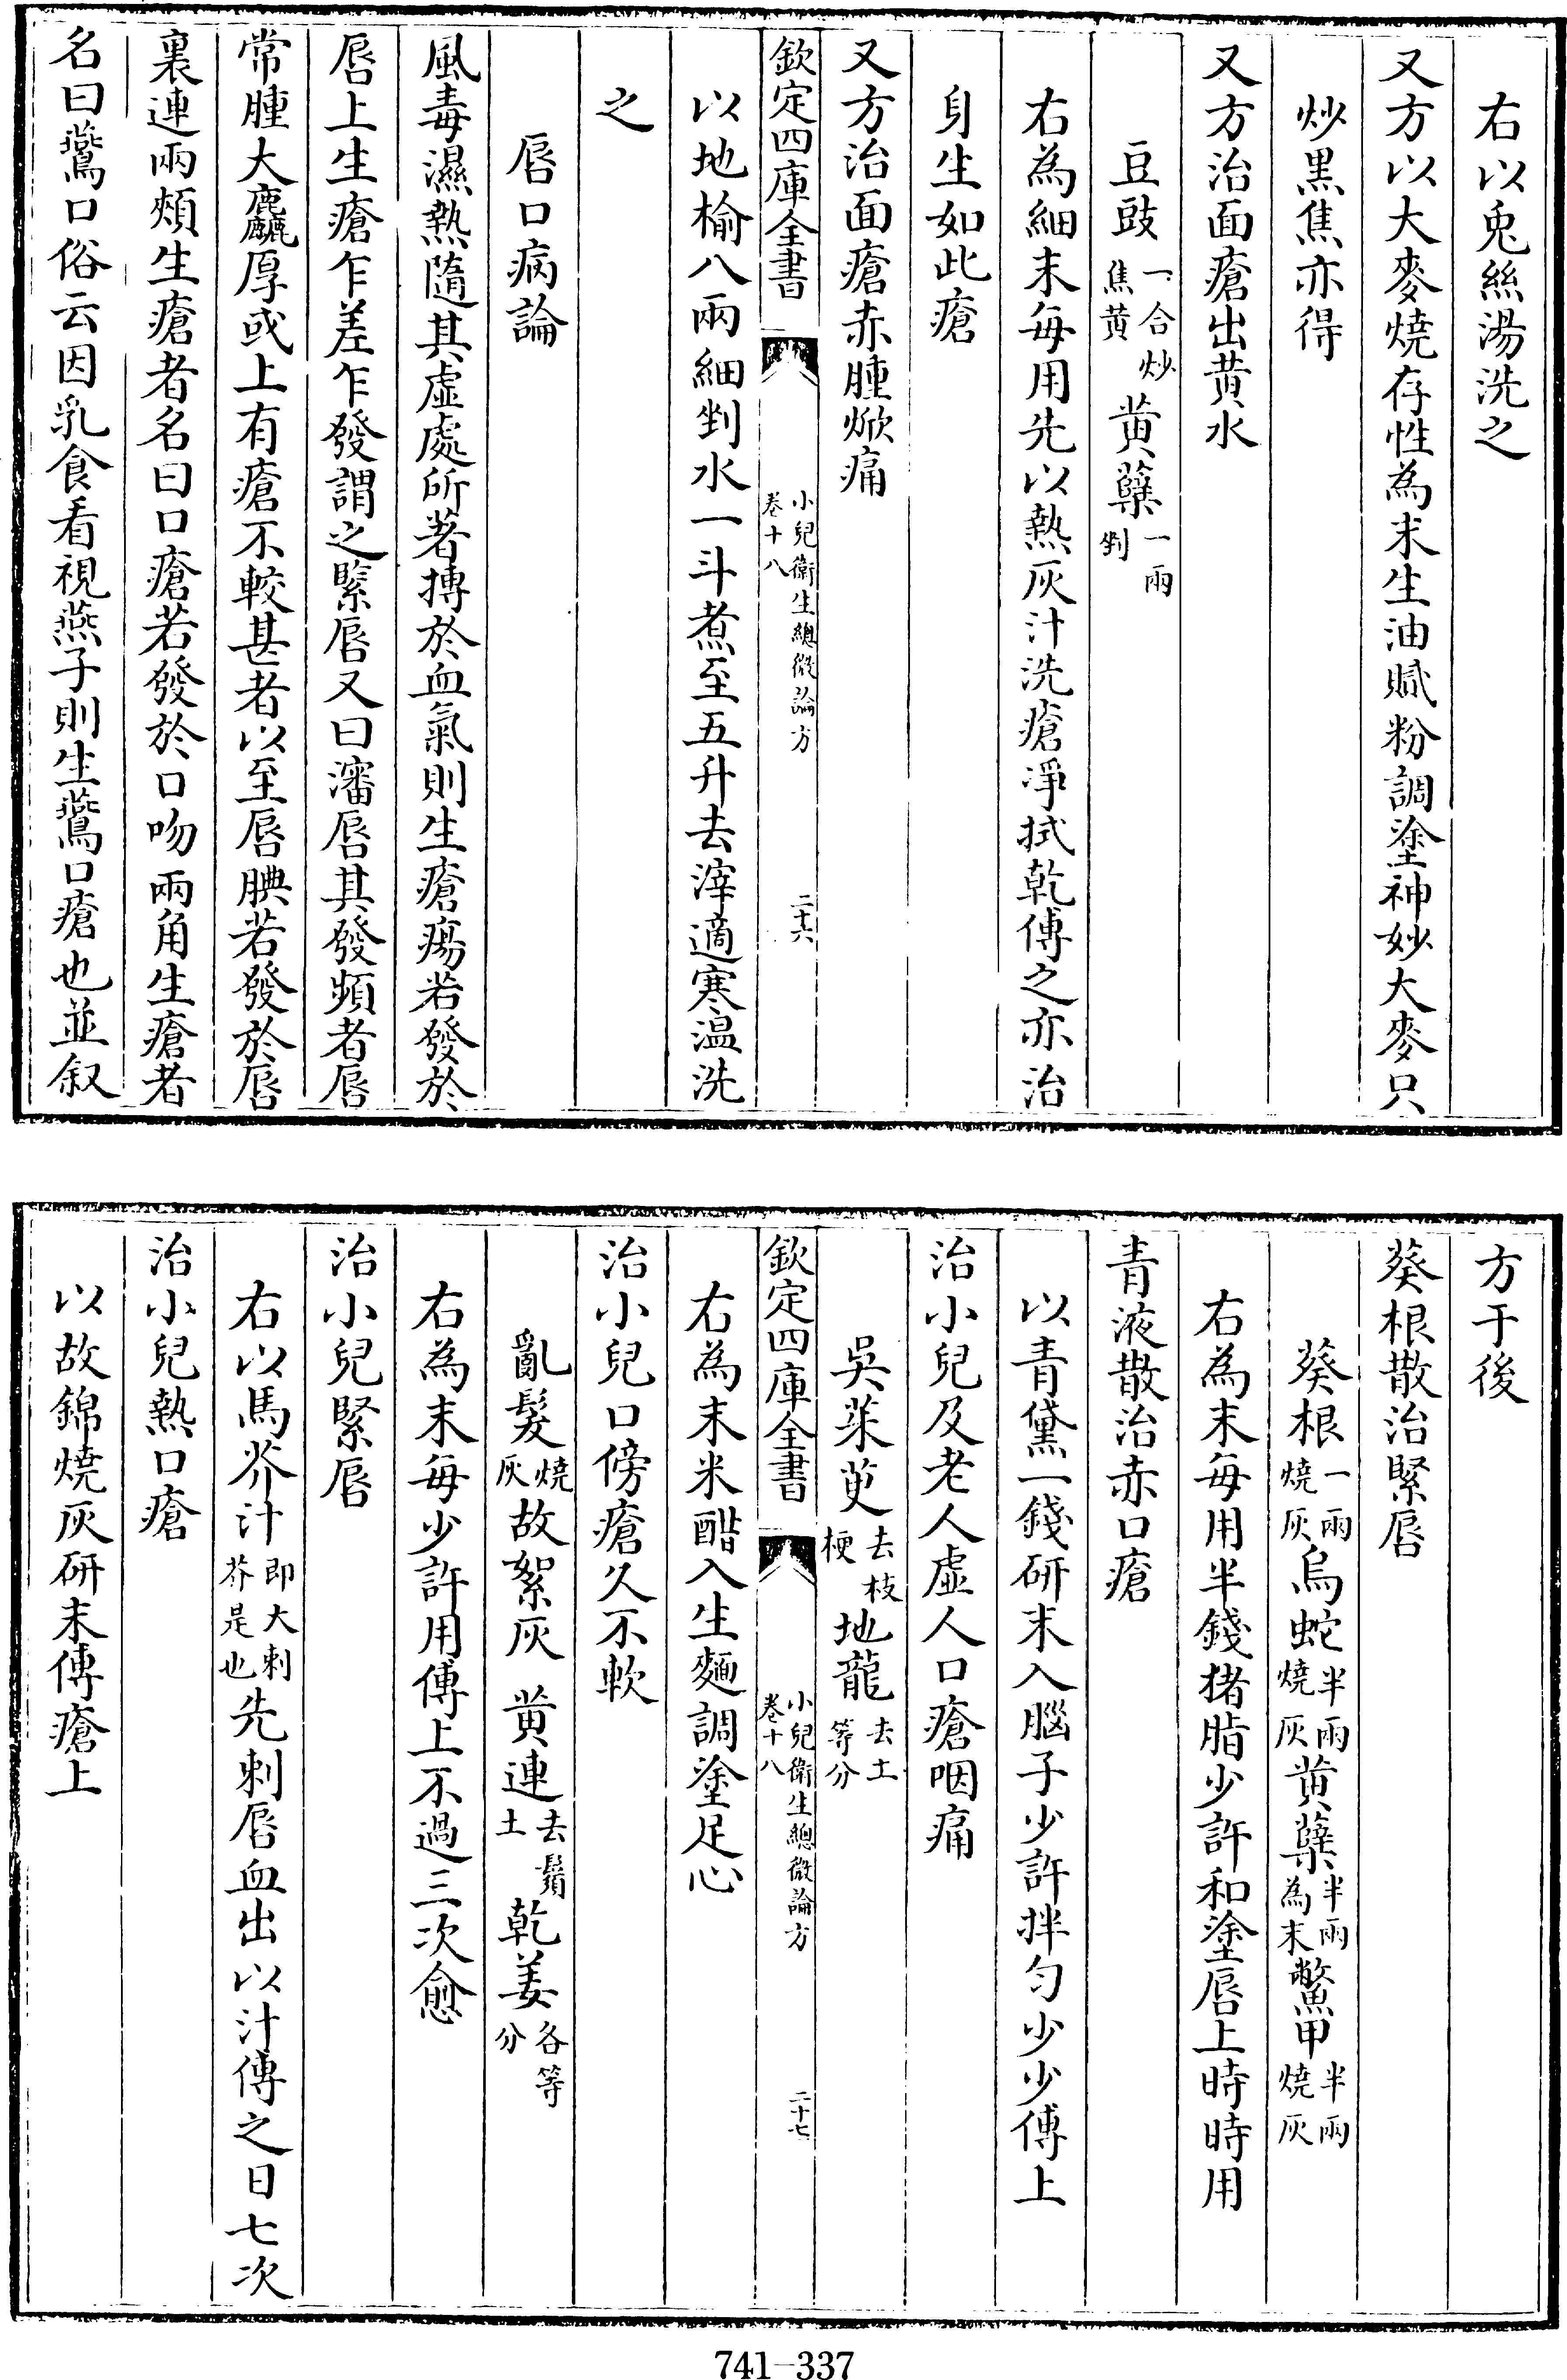 右以兎絲湯洗之
又方以大麥燒存性為末生油膩粉調塗神妙大麥只
炒黒焦亦得
又方治面瘡出黄水
豆豉一合炒焦黄 黄蘗一兩剉
右為細末每用先以熱灰汁洗瘡淨拭乾傅之亦治
身生如此瘡
又方治面瘡赤腫焮痛
欽定四庫全書 小兒衛生總微論方卷十八 二十六
以地榆八兩細剉水一斗煮至五升去滓適寒温洗
之
唇口病論
風毒濕熱隨其虚處所著摶於血氣則生瘡瘍若發於
唇上生瘡乍差乍發謂之緊唇又曰瀋唇其發頻者唇
常腫大麤厚或上有瘡不較甚者以至唇腆若發於唇
裏連兩頰生瘡者名曰口瘡若發於口吻兩角生瘡者
名曰鷰口俗云因乳食看視燕子則生鷰口瘡也並叙
方于後
葵根散治緊唇
葵根一兩燒灰烏蛇半兩燒灰黄蘗半兩為末鱉甲半兩燒灰
右為末每用半錢猪脂少許和塗唇上時時用
青液散治赤口瘡
以青黛一錢研末入腦子少許拌勻少少傅上
治小兒及老人虚人口瘡咽痛
吳茱萸去枝梗地龍去土等分
欽定四庫全書 小兒衛生總微論方卷十八 二十七
右為末米醋入生麵調塗足心
治小兒口傍瘡久不軟
亂髪燒灰故絮灰 黄連去鬚土乾姜各等分
右為末每少許用傅上不過三次愈
治小兒緊唇
右以馬芥汁即大刺芥是也先刺唇血出以汁傅之日七次
治小兒熱口瘡
以故錦燒灰研末傅瘡上
741-337